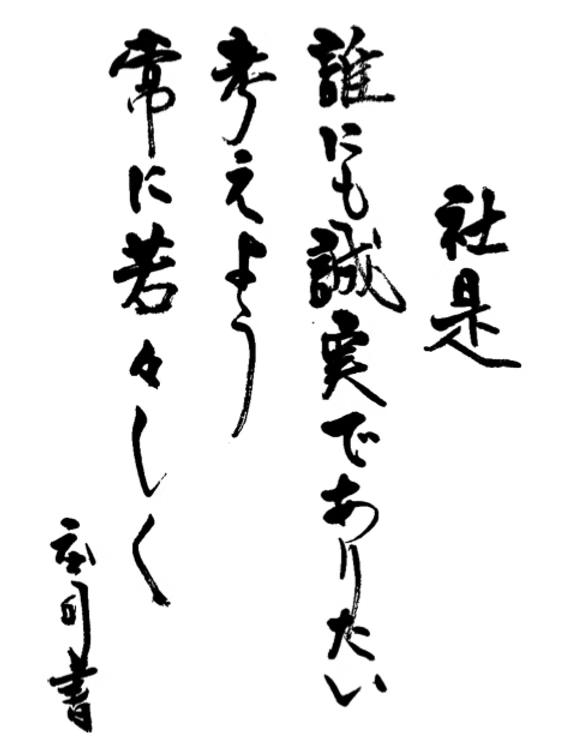 社是
誰にも誠実でありたい
考えよう
常に若々しく
庄司書